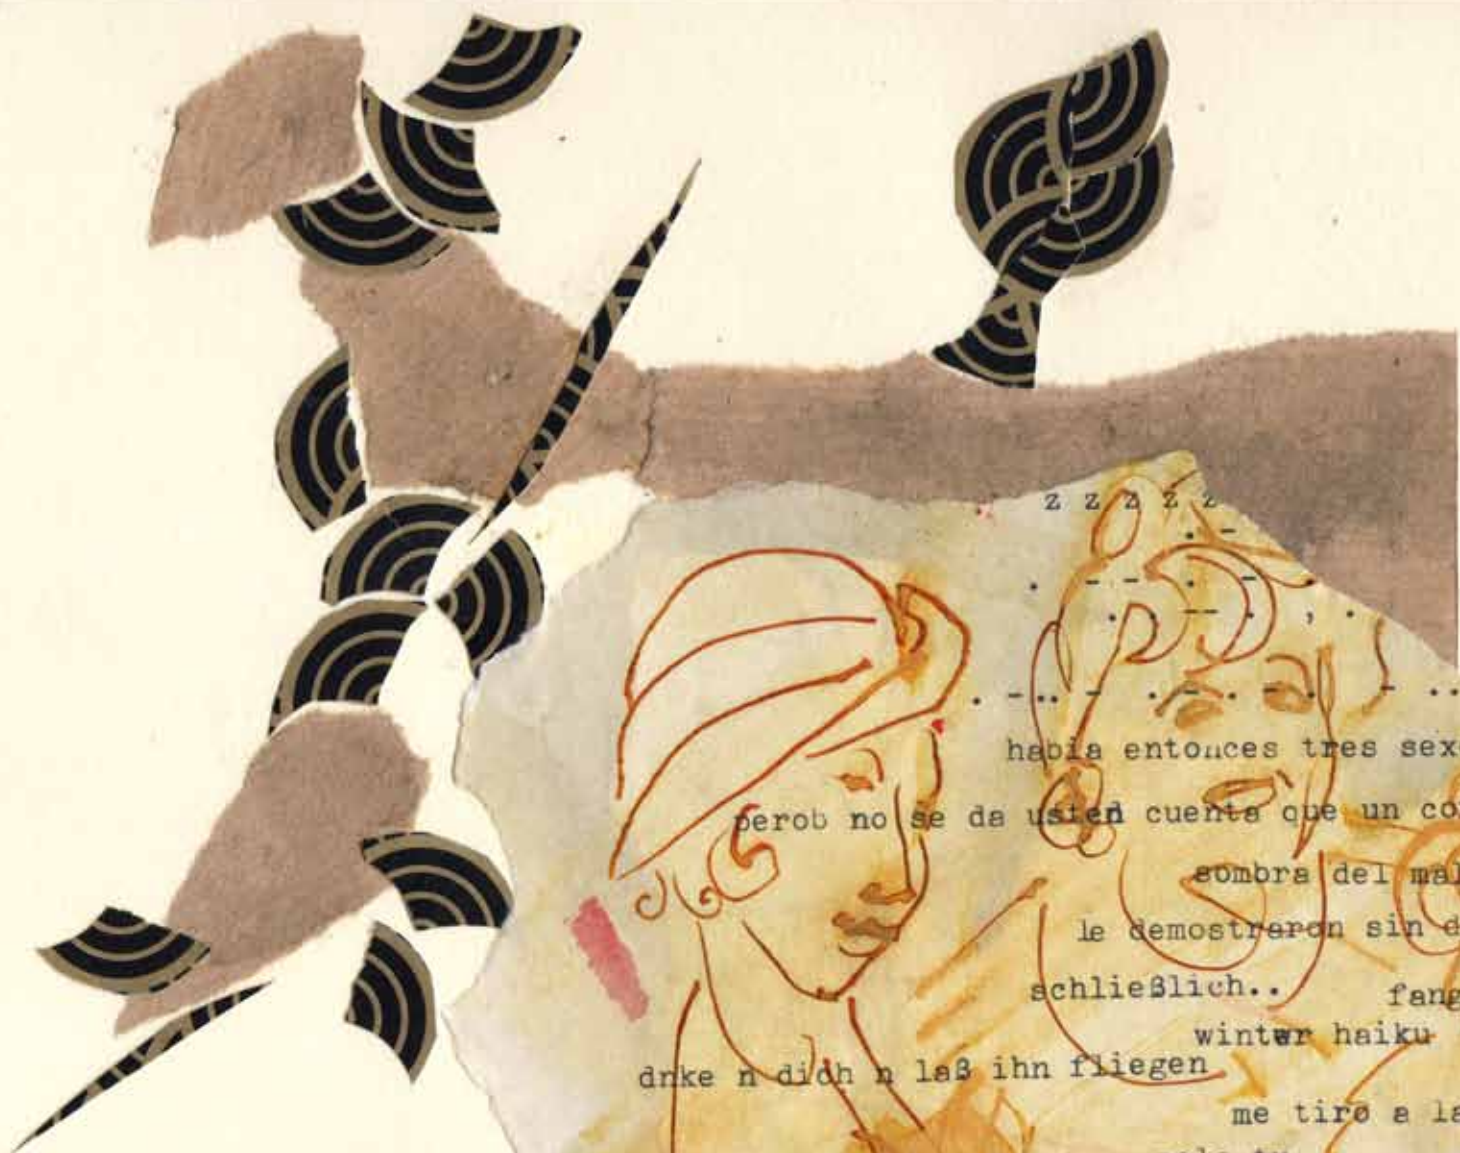 z z z z z
. -
. - - . -
. -- . , .
. -.. - . - . - . - ..
habia entonces tres sex
perob no se da usted cuenta que un co
sombra del mal
le demostraron sin d
schließlich.. fang
wintwr haiku
dnke n dich n laß ihn fliegen
me tiro a la